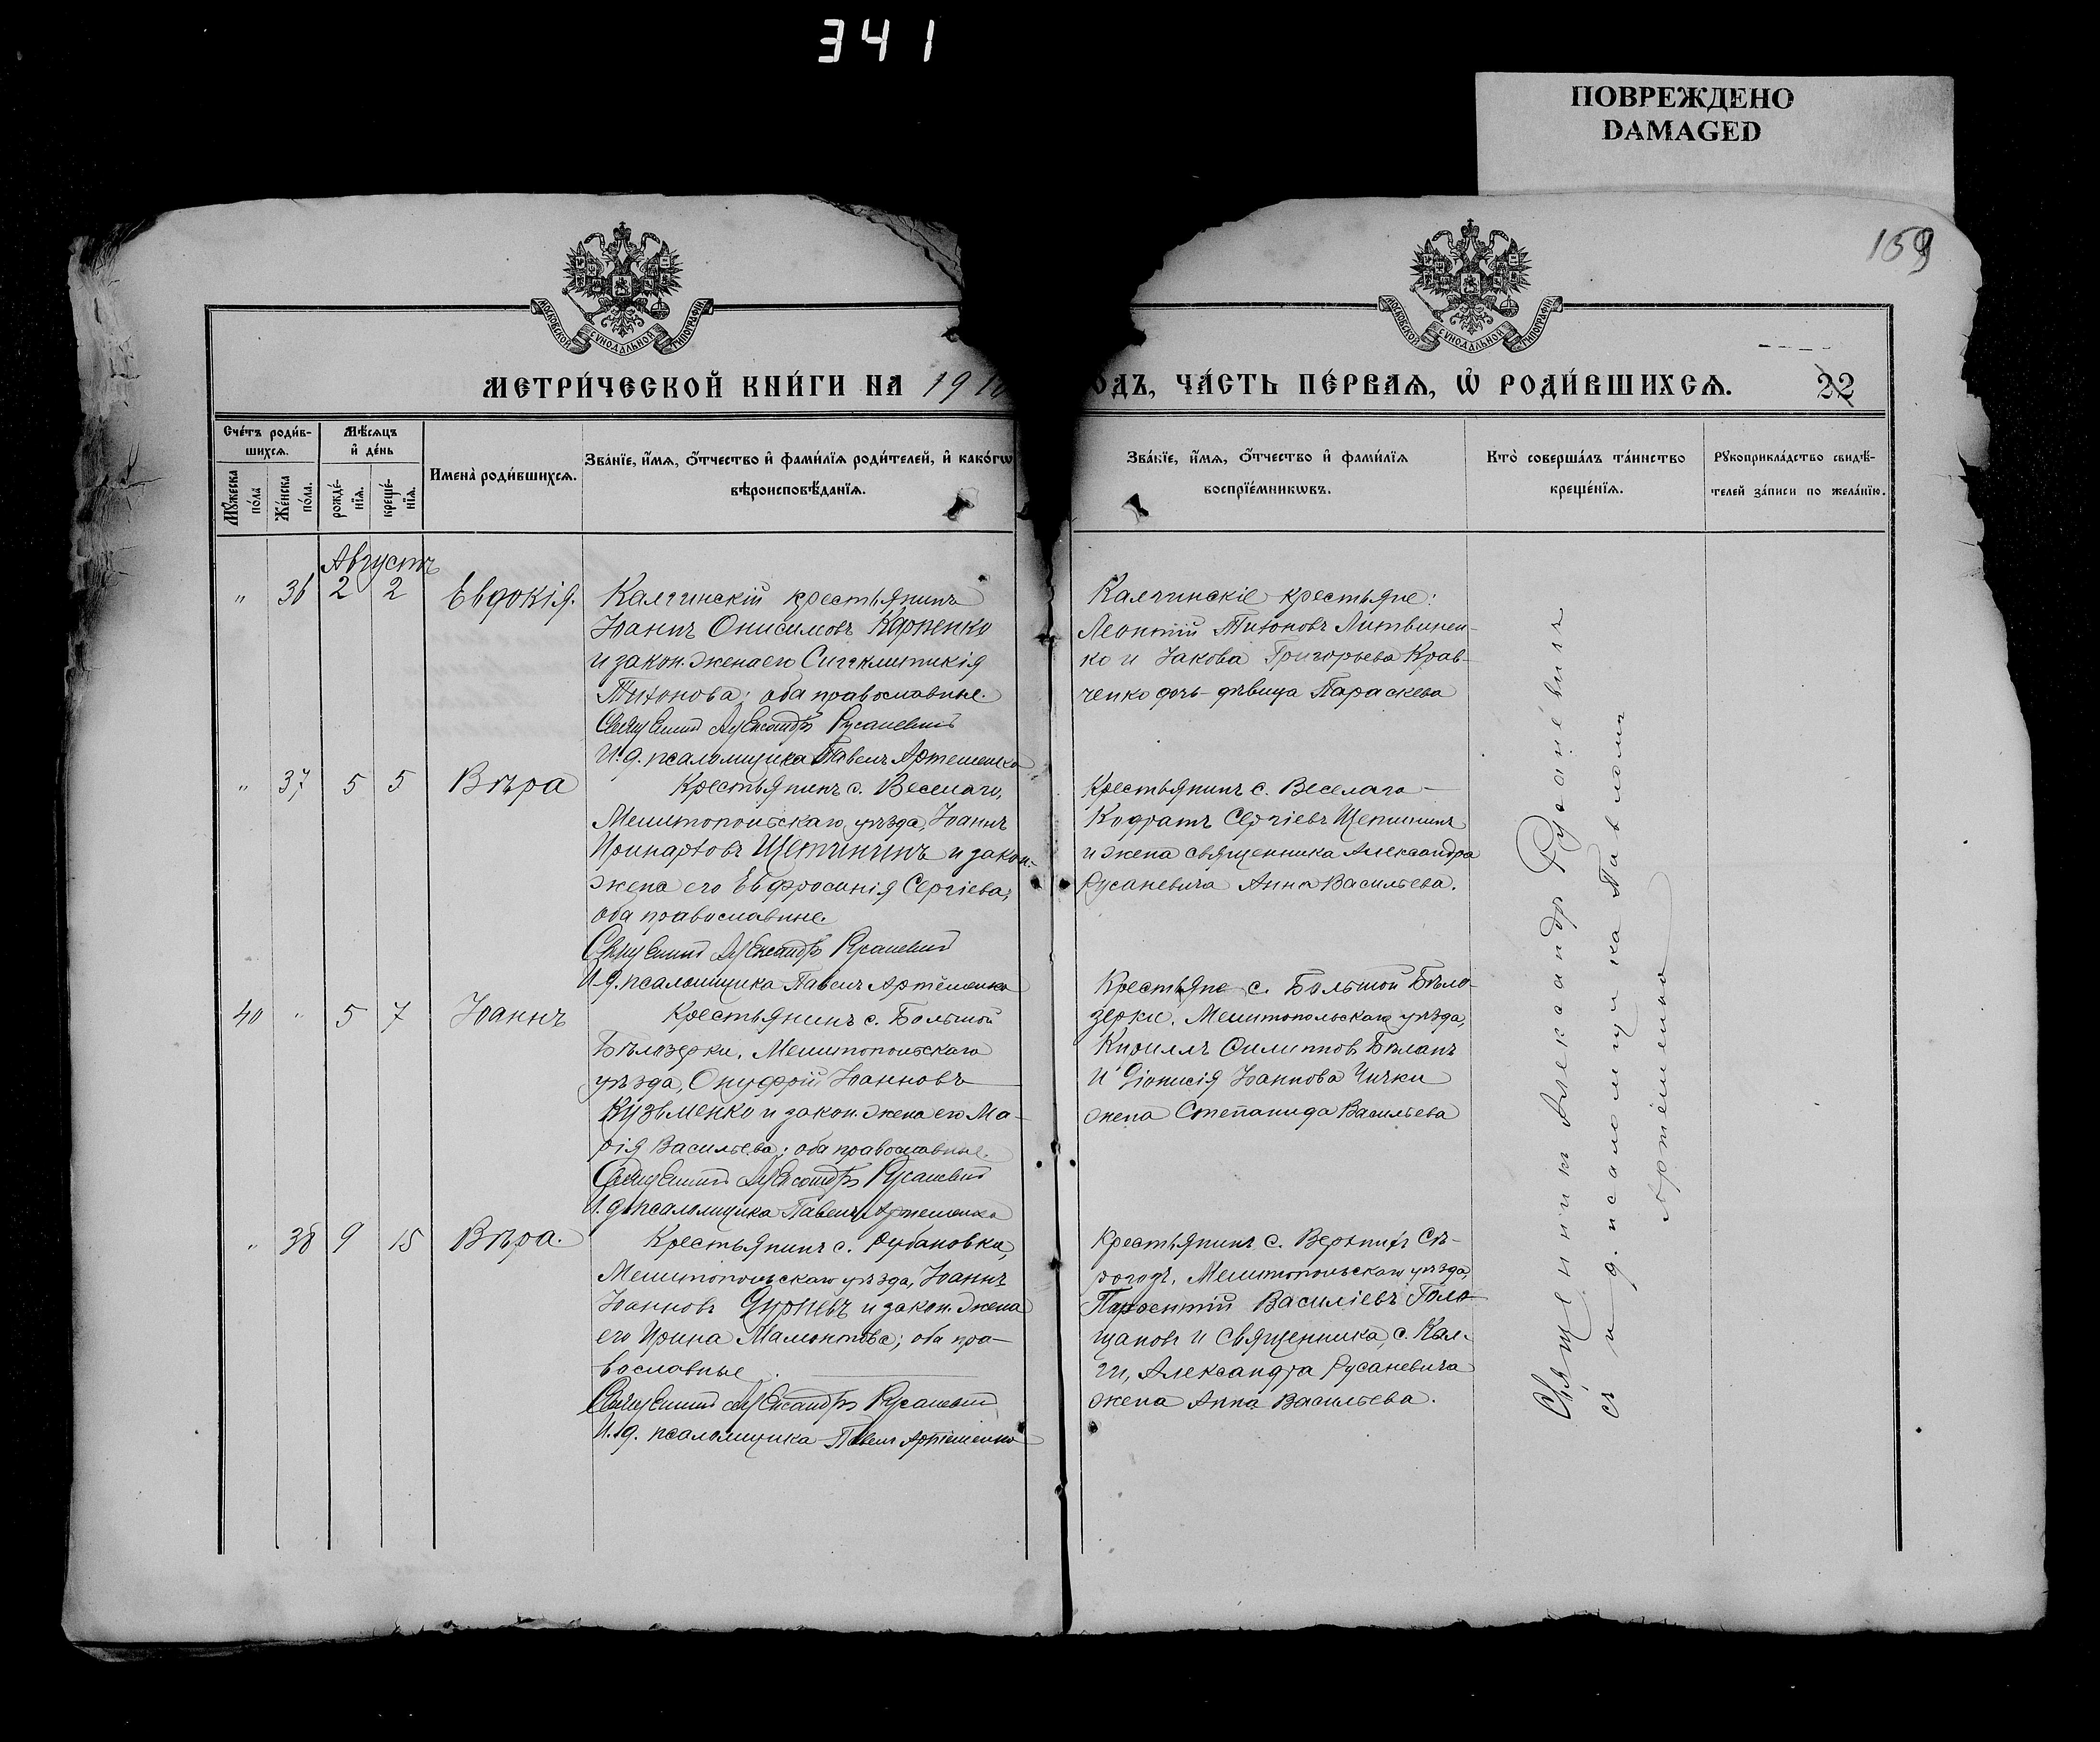 341
ПОВРЕЖДЕНО
DAMAGED
159
МОСКОВСКОЙ СѴНОДАЛЬНОЙ ТИПОГРАФІИ
МОСКОВСКОЙ СѴНОДАЛЬНОЙ ТИПОГРАФІИ
МЕТРИ́ЧЕСКОЙ КНИ́ГИ НА 1910
ОДЪ, ЧА́СТЬ ПЕ́РВАѦ, Ѡ҆ РОДИ́ВШИХСѦ. 22
Сче́тъ роди́в-
шихсѧ.
Мꙋ́жеска по́ла
Же́нска по́ла.
Мѣ́сѧцъ
и҆ де́нь
рожде́-
нїѧ.
креще́-
нїѧ.
Имена̀ роди́вшихсѧ.
Зва́нїе, и҆́мѧ, ѻ҆́тчество и҆ фами́лїѧ роди́телей, и҆ како́гѡ
вѣроисповѣ́данїѧ.
Зва́нїе, и҆́мѧ, ѻ҆́тчество и҆ фами́лїѧ
воспрїе́мникѡвъ.
Кто̀ соверша́лъ та́инство
креще́нїѧ.
Рꙋкоприкла́дство свидѣ́-
телей за́писи по жела́нїю.
Августъ
" 36 2 2 Евдокія.
Калгинскій крестьянинъ
Іоаннъ Онисимовъ Карпенко
и закон. жена его Сигклитикія
Тихонова; оба православные.
Священникъ Александръ Русаневичъ
И. д. псаломщика Павелъ Артеменко
Калгинскіе крестьяне:
Леонтій Тихоновъ Литвинен-
ко и Іакова Григорьева Крав-
ченко дочь-дѣвица Параскева
" 37 5 5 Вѣра
Крестьянинъ с. Веселаго,
Мелитопольскаго уѣзда, Іоаннъ
Иринарховъ Щетининъ и закон.
жена его Евфросинія Сергіева;
оба православные.
Священникъ Александръ Русаневичъ
И. д. псаломщика Павелъ Артёменко
Крестьянинъ с. Веселаго
Кодратъ Сергіевъ Щетининъ
и жена священника Александра
Русаневича Анна Васильева.
40 " 5 7 Іоаннъ
Крестьянинъ с. Большой
Бѣлозерки, Мелитопольскаго
уѣзда, Онуфрій Іоанновъ
Кузьменко и закон. жена его Ма-
рія Васильева; оба православные.
Священникъ Александръ Русаневичъ
И. д. псаломщика Павелъ Артеменко
Крестьяне с. Большой Бѣло-
зерки, Мелитопольскаго уѣзда,
Кириллъ Филипповъ Бѣланъ
и Діонисія Іоаннова Чички
жена Степанида Васильева
" 38 9 15 Вѣра.
Крестьянинъ с. Рубановки,
Мелитопольскаго уѣзда, Іоаннъ
Іоанновъ Дурневъ и закон. жена
его Ирина Мамонтова; оба пра-
вославные.
Священникъ Александръ Русаневичъ
И. д. псаломщика Павелъ Артёменко
Крестьянинъ с. Верхнихъ Сѣ-
рогозъ, Мелитопольскаго уѣзда,
Парфентій Василіевъ Голо-
щаповъ и священника, с. Кал-
ги, Александра Русаневича
жена Анна Васильева.
Священникъ Александръ Русаневичъ
съ и. д. псаломщика Павломъ
Артёменко